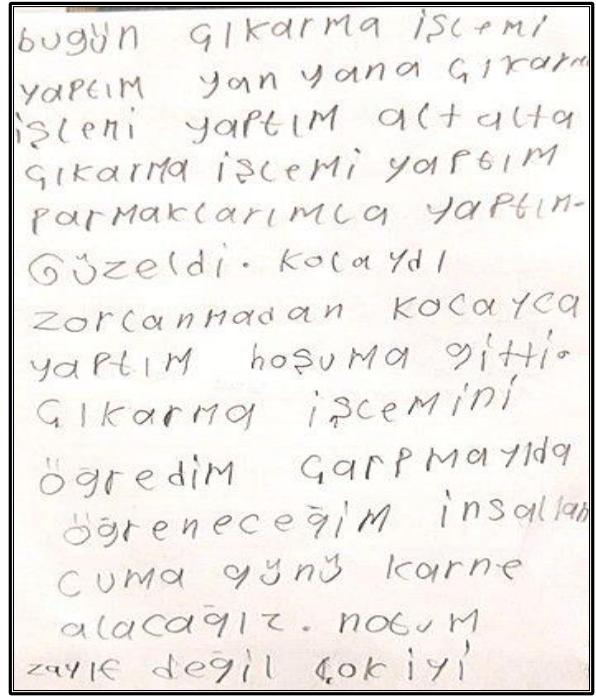 bugün çıkarma işlemi
yaptım yan yana çıkarma
işlemi yaptım alt alta
çıkarma işlemi yaptım
parmaklarımla yaptım.
Güzeldi. kolaydı
zorlanmadan kolayca
yaptım hoşuma gitti.
Çıkarma işlemini
öğredim çarpmayıda
öğreneceğim insallah
cuma günü karne
alacağız. notum
zayıf değil çok iyi